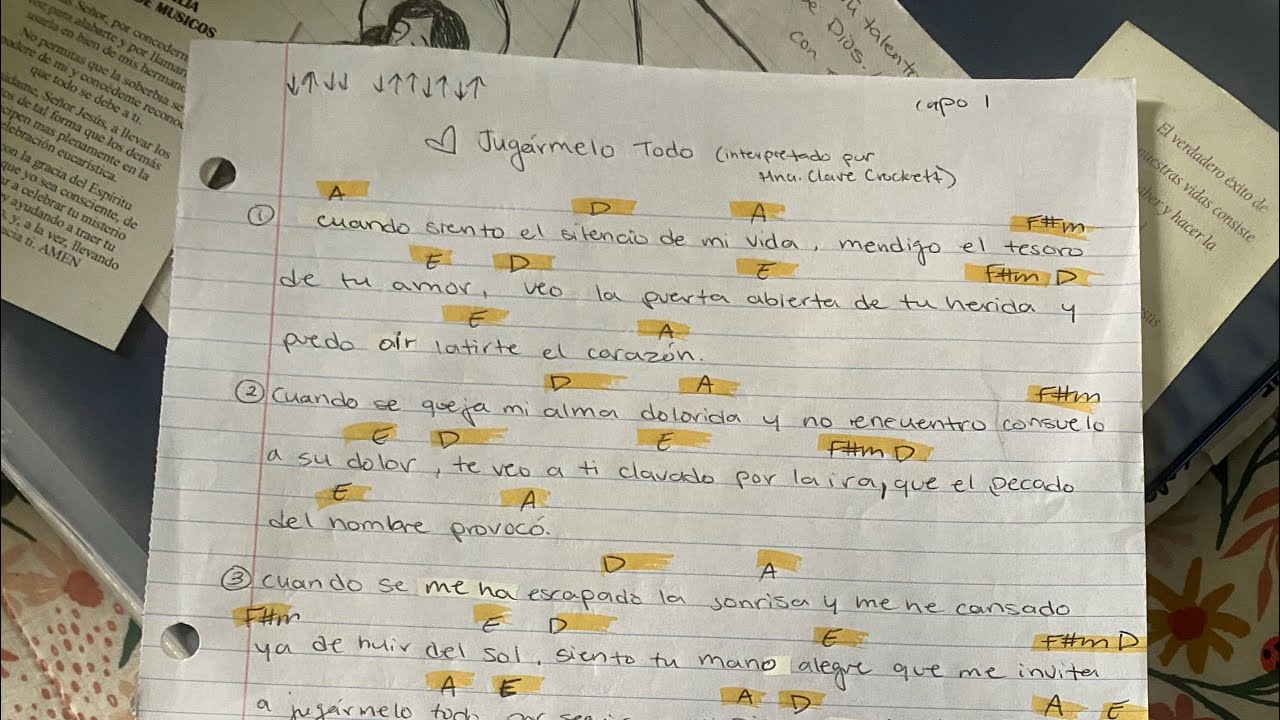 DE MUSICOS
Señor, por concederm
para alabarte y por llamarm
usarlo en bien de mis hermano
No permitas que la soberbia se
apodere de mi y concédeme reconoc
que todo se debe a ti.
Señor Jesús, a llevar los
de tal forma que los demás
mas plenamente en la
celebración eucarística.
con la gracia del Espíritu
que yo sea consciente, de
a celebrar tu misterio
y ayudando a traer tu
y, a la vez, llevando
hacia ti. AMEN
tu talento
Dios.
con
↓↑↓↓ ↓↑↑↓↑↓↑
capo 1
♡ Jugármelo Todo (interpretado por
Hna. Clare Crockett)
A D A F#m
① cuando siento el silencio de mi vida, mendigo el tesoro
E D E F#m D
de tu amor, veo la puerta abierta de tu herida y
E A
puedo oír latirte el corazón.
D A F#m
② Cuando se queja mi alma dolorida y no encuentro consuelo
E D E F#m D
a su dolor, te veo a ti clavado por la ira, que el pecado
E A
del hombre provocó.
D A
③ cuando se me ha escapado la sonrisa y me he cansado
F#m E D E F#m D
ya de huir del sol, siento tu mano alegre que me invita
A E A D A E
a jugármelo todo por
El verdadero éxito de
nuestras vidas consiste
saber y hacer la